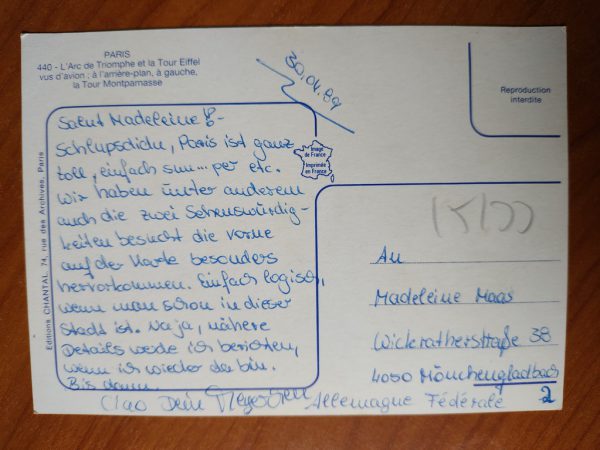 PARIS
440 - L'Arc de Triomphe et la Tour Eiffel
vus d'avion ; à l'arrière-plan, à gauche,
la Tour Montparnasse
30.04.89
Reproduction
interdite
Salut Madeleine!
Schlupsdidu, Paris ist ganz
toll, einfach sun... per etc.
Wir haben unter anderem
auch die zwei Sehenswürdig-
keiten besucht die vorne
auf der Karte besonders
hervorkommen. Einfach logisch,
wenn man schon in dieser
Stadt ist. Na ja, nähere
Details werde ich berichten,
wenn ich wieder da bin.
Bis dann.
Ciao Dein
Image
de France
Imprimée
en France
Editions CHANTAL, 74, rue des Archives, Paris
An
Madeleine Maas
Wickratherstraße 38
4050 Mönchengladbach
2
Allemagne Fédérale